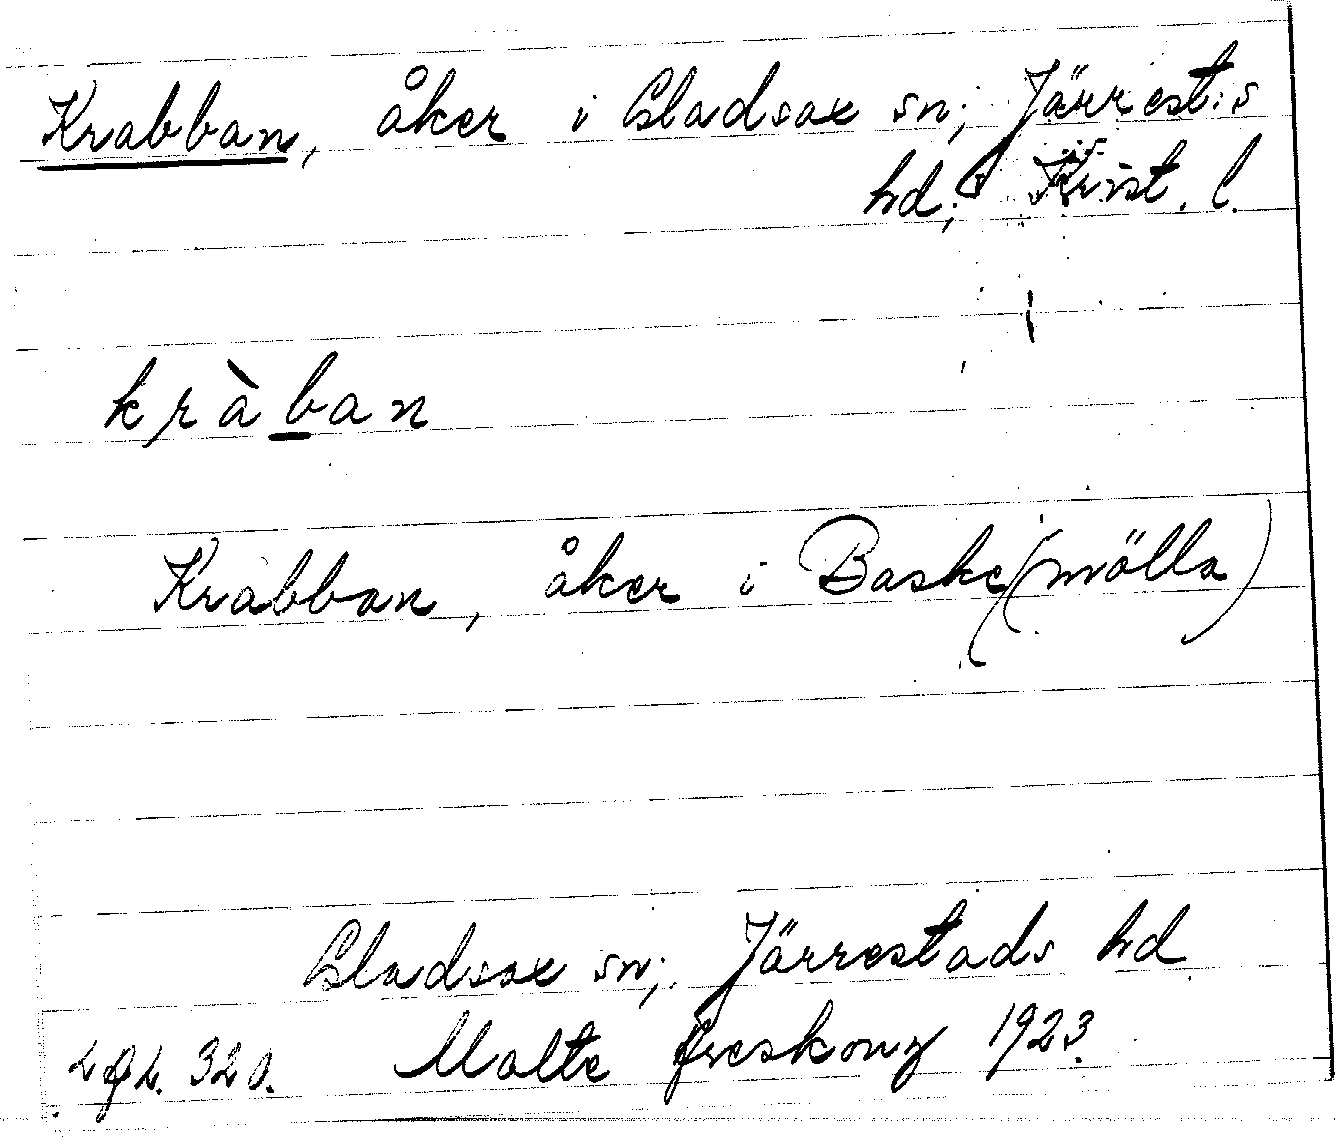 Krabban, åker i Gladsax sn; Järrest:s
hd; Krist. l.
kràban
Krabban, åker i Baske(mölla)
Gladsax sn; Järrestads hd
Malte Areskoug 1923.